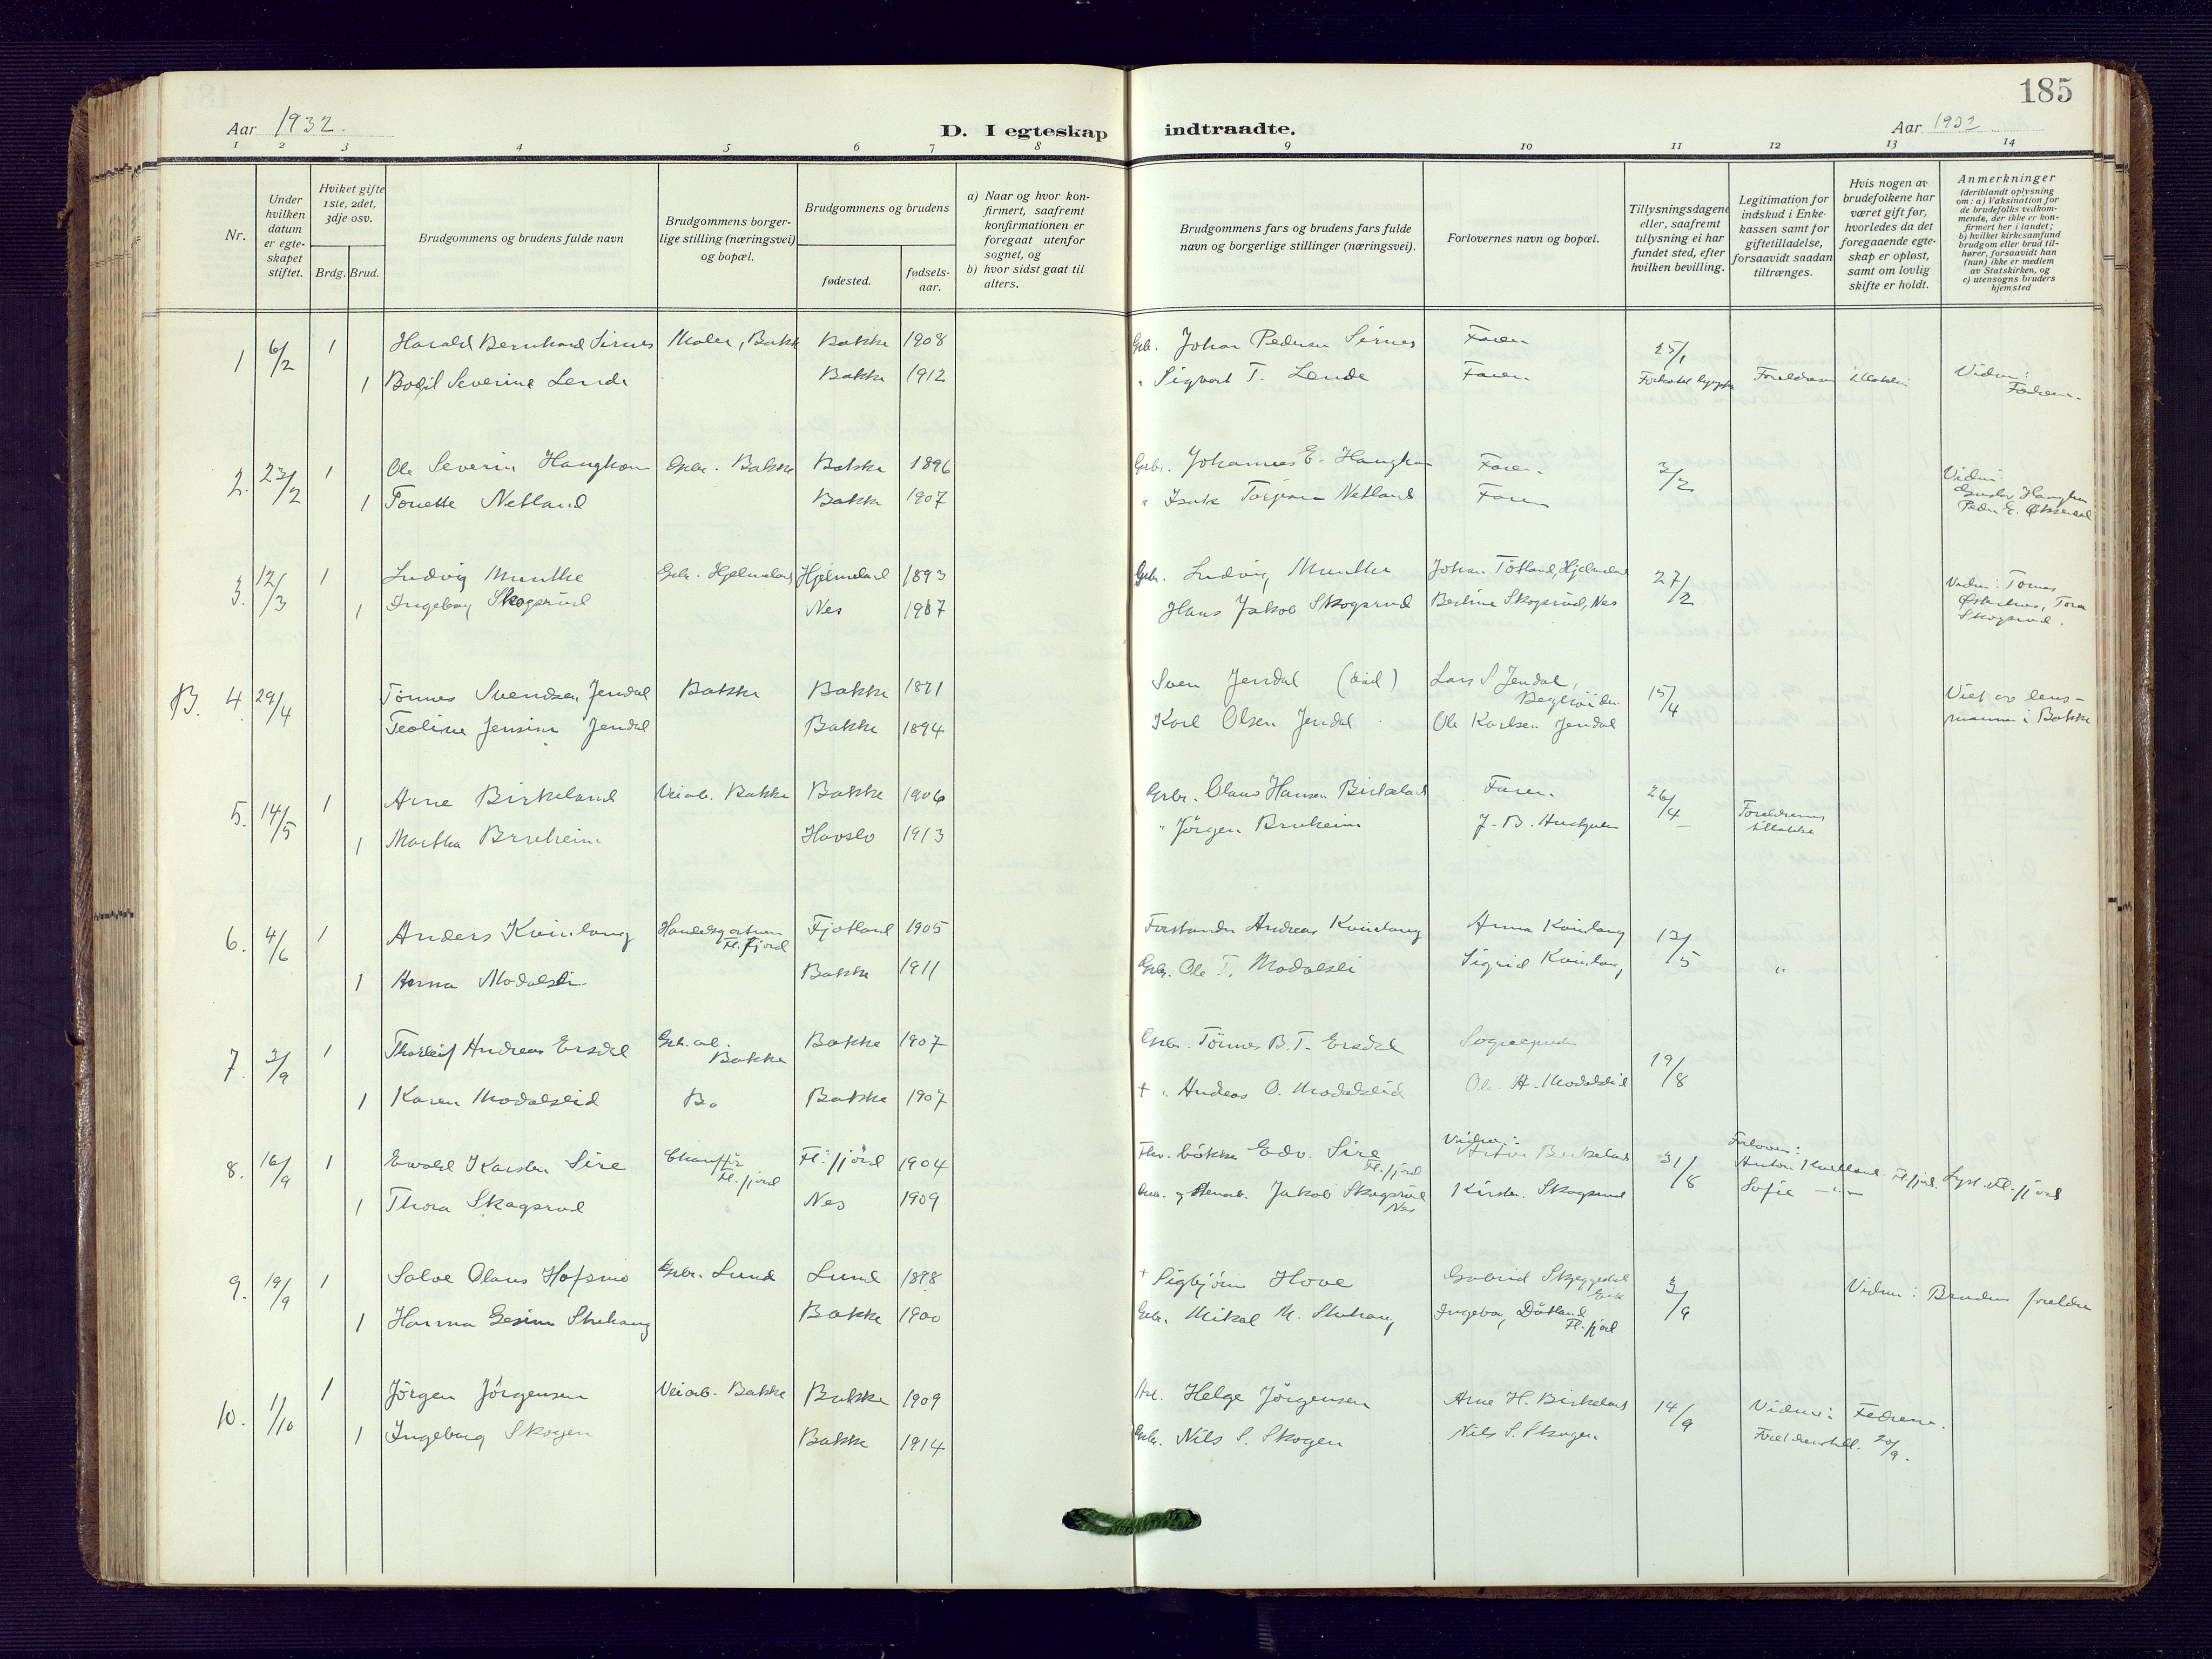 185
Aar 1932.
D. I egteskap indtraadte.
Aar 1932
1 2 3 4 5 6 7 8 9 10 11 12 13 14
Nr.
Under hvilken datum er egteskapet stiftet.
Hviket gifte 1ste, 2det, 3dje osv.
Brdg. Brud.
Brudgommens og brudens fulde navn
Brudgommens borgerlige stilling (næringsvei) og bopæl.
Brudgommens og brudens
fødested.
fødselsaar.
a) Naar og hvor konfirmert, saafremt konfirmationen er foregaat utenfor sognet, og
b) hvor sidst gaat til alters.
Brudgommens fars og brudens fars fulde navn og borgerlige stillinger (næringsvei).
Forlovernes navn og bopæl.
Tillysningsdagene eller, saafremt tillysning ei har fundet sted, efter hvilken bevilling.
Legitimation for indskud i Enkekassen samt for giftetilladelse, forsaavidt saadan tiltrænges.
Hvis nogen av brudefolkene har været gift før, hvorledes da det foregaaende egteskap er opløst, samt om lovlig skifte er holdt.
Anmerkninger (deriblandt oplysning om: a) Vaksination for de brudefolks vedkommende, der ikke er konfirmert her i landet; b) hvilket kirkesamfund brudgom eller brud tilhører, forsaavidt han (hun) ikke er medlem av Statskirken, og c) utensogns bruders hjemsted
1 6/2 1 Harald Bernhard Sirnes Maler, Bakk Bakke 1908 Grb. Johan Pedersen Sirnes Faren 25/1
1 Bodil Severine Lende Bakke 1912 " Sigvart T. Lende Faren Foreldrenes tillatelse Vidner: Fedrene.
2. 23/2 1 Ole Severin Haughom Grbr. Bakke Bakke 1896 Grbr. Johannes E. Haughom Faren. 3/2 Vidner:
1 Tonette Netland Bakke 1907 " Isak Torjesen Netland Faren Haughom Peder E. Øksendal
3. 12/3 1 Ludvig Munthe Grbr. Hjelmeland Hjelmeland 1893 Grb. Ludvig Munthe Johan Tötland, Hjelmeland 27/2 Vidner: Tomas
1 Ingeborg Skogsrud Nes 1907 Hans Jakob Skogsrud Berthine Skogsrud, Nes Tora Skogsrud.
B. 4. 29/4 Tönnes Svendsen Jerdal Bakke Bakke 1871 Sven Jerdal (död) Lars S Jerdal, 15/4 Viet av lens-
Teoline Jensine Jerdal Bakke 1894 Karl Olsen Jerdal Ole Karlsen Jerdal mannen i Bakke
5. 14/5 1 Arne Birkeland Veiarb. Bakke Bakke 1906 Grbr. Olaus Hansen Birkeland Faren. 26/4 Foreldrenes tillatelse
1 Martha Bruheim Havslo 1913 " Jörgen Bruheim J. B.
6. 4/6 1 Anders Kvinlaug Handelsgartner Fl.fjord Fjotland 1905 Forstander Andreas Kvinlaug Anna Kvinlaug 13/5 "
1 Anna Modalsli Bakke 1911 Grbr. Ole T. Modalsli Sigrid Kvinlaug
7. 3/9 1 Thorleif Andreas Ersdal Grb. arb. Bakke Bakke 1907 Grbr. Tönnes B. T. Ersdal Sogneprest 19/8
1 Karen Modalsleid Bo Bakke 1907 + " Andreas O. Modalsleid Ole A. Modalsleid
8. 16/9 1 Ewald Karsten Sire Chauffør Fl.fjord Fl.fjord 1904 Edv. Sire Fl.fjord Vidner: Birkeland 31/8 Forlover: Anton Kvelland Fl.fjord. Lyst Fl.fjord
1 Thora Skogsrud Nes 1909 Jakob Skogsrud Nes Kirsten Skogsrud Sofie — " —
9. 19/9 1 Salve Olaus Hofsmo Grbr. Lund Lund 1898 + Sigbjörn Hove Gabriel Skjeggedal 3/9 Vidner: Brudens foreldre
1 Hanna Gesine Stuhaug Bakke 1900 Grbr. Mikal M. Stuhaug Ingeborg Dåtland Fl.fjord
10. 1/10 1 Jörgen Jörgensen Veiarb. Bakke Bakke 1909 Helge Jörgensen Arne H. Birkeland 14/9 Vidner: Fedrene.
1 Ingeborg Skogen Bakke 1914 Grbr. Nils S. Skogen Nils S. Skogen Foreldrenes till. 20/9.